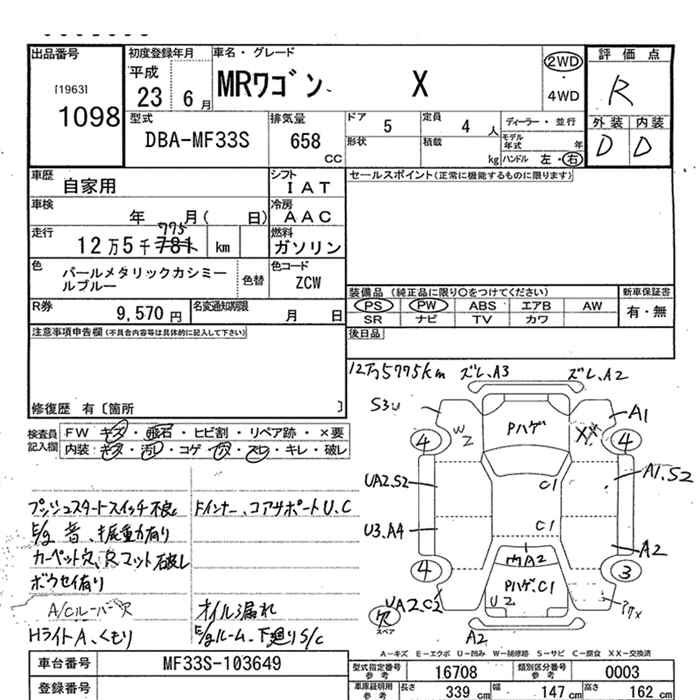 出品番号
[1963]
1098
初度登録年月
平成
23 6月
車名・グレード
MRワゴン X
2WD
4WD
評価点
R
外装 内装
D D
型式
DBA-MF33S
排気量
658 CC
ドア 5
定員 4 人
形状
積載 kg
ディーラー・並行
モデル年式 年
ハンドル 左・右
車歴 自家用
シフト IAT
セールスポイント(正常に機能するものに限ります)
車検 年 月( 日)
冷房 AAC
走行 12万5千781 km
775
燃料 ガソリン
色 パールメタリックカシミールブルー
色替
色コード ZCW
R券 9,570円
名変通知期限 月 日
装備品(純正品に限り○をつけてください)
新車保証書
PS PW ABS エアB AW
SR ナビ TV カワ
有・無
注意事項申告欄(不具合内容等は具体的に記入して下さい)
後日品
修復歴 有〔箇所 〕
12万5775km
ズレ、A3
ズレ、A2
検査員記入欄
FW キズ・飛石・ヒビ割・リペア跡・×要
内装:キズ・汚レ・コゲ・穴・スレ・キレ・破レ
S3U
W2
Pハゲ
XX
A1
4
4
UA2.S2
C1
A1.S2
U3.A4
C1
A2
A2
4
3
PハゲC1
U2
UA2.C2
欠
スペア
A2
プッシュスタートスイッチ不良
ドインナー、コアサポートU、C
E/g 音、振重力有り
カーペット穴、Rマット破レ
ボウセイ有り
A/Cルーバー欠
オイル漏れ
Hライト A、くもり
E/gルーム、下廻りS/C
A-キズ E-エクボ U-凹み W-補修跡 S-サビ C-腐食 XX-交換済
車台番号 MF33S-103649
登録番号
型式指定番号 参考 16708
類別区分番号 参考 0003
車庫証明用 参考 長さ 339cm 幅 147cm 高さ 162cm